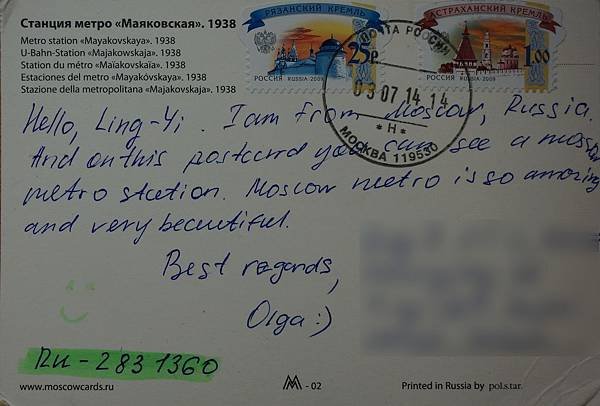 Станция метро «Маяковская». 1938
Metro station «Mayakovskaya». 1938
U-Bahn-Station «Majakowskaja». 1938
Station du métro «Maïakovskaïa». 1938
Estaciones del metro «Mayakóvskaya». 1938
Stazione della metropolitana «Majakovskaja». 1938
РЯЗАНСКИЙ КРЕМЛЬ
25р
РОССИЯ RUSSIA 2009
АСТРАХАНСКИЙ КРЕМЛЬ
1.00
РОССИЯ RUSSIA 2009
ПОЧТА РОССИИ
03 07 14 14
* Н *
МОСКВА 119530
Hello, Ling-Yi. I am from Moscow, Russia.
And on this postcard you can see a Moscow
metro station. Moscow metro is so amazing
and very beautiful.
Best regards,
Olga :)
RU-2831360
www.moscowcards.ru
M - 02
Printed in Russia by pol.s.tar.